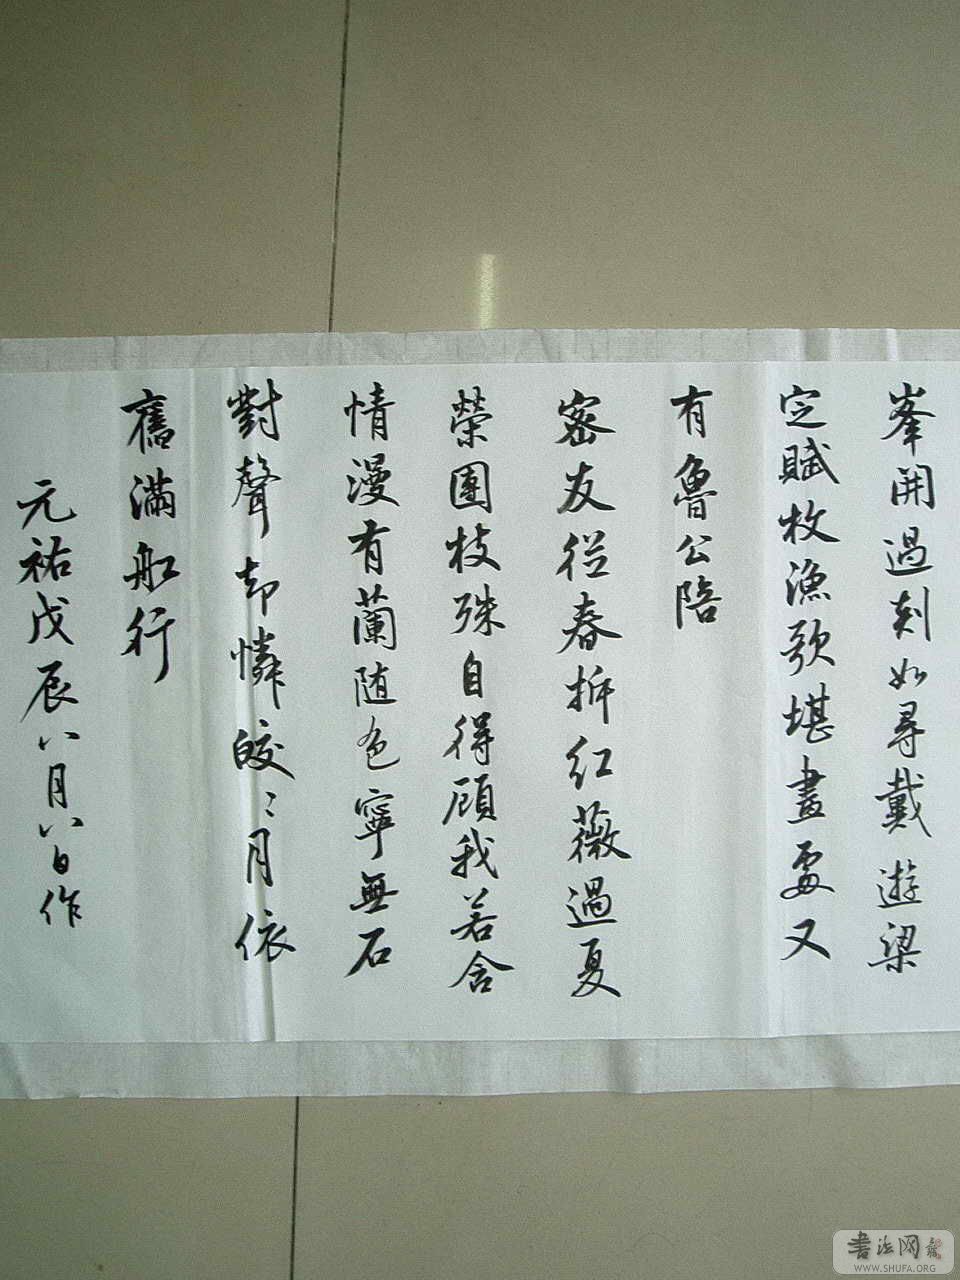 峯開過剡如尋戴遊梁
定賦枚漁歌堪畫處又
有魯公陪
密友從春拆紅薇過夏
榮團枝殊自得顧我若含
情漫有蘭随色寧無石
對聲却憐皎〻月依
舊滿船行
元祐戊辰八月八日作
書法网
WWW.SHUFA.ORG